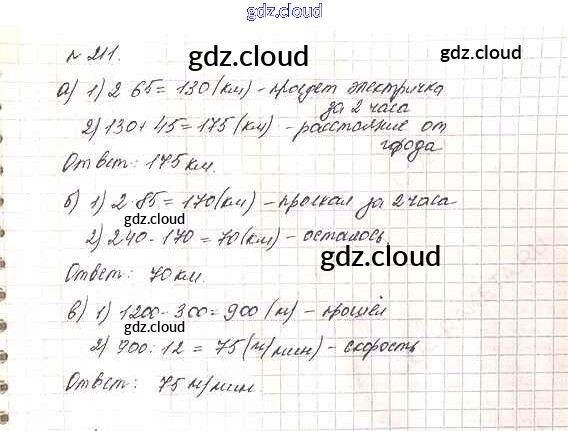 gdz.cloud
№ 211.
gdz.cloud
а) 1) 2·65=130 (км) - проедет электричка
за 2 часа
2) 130+45=175 (км) - расстояние от
города
Ответ: 175 км.
gdz.cloud
б) 1) 2·85=170 (км) - проехал за 2 часа
gdz.cloud
2) 240-170=70 (км) - осталось
gdz.cloud
Ответ: 70 км.
в) 1) 1200-300=900 (м) - прошёл
gdz.cloud
2) 900:12=75 (м/мин) - скорость
Ответ: 75 м/мин.
gdz.cloud